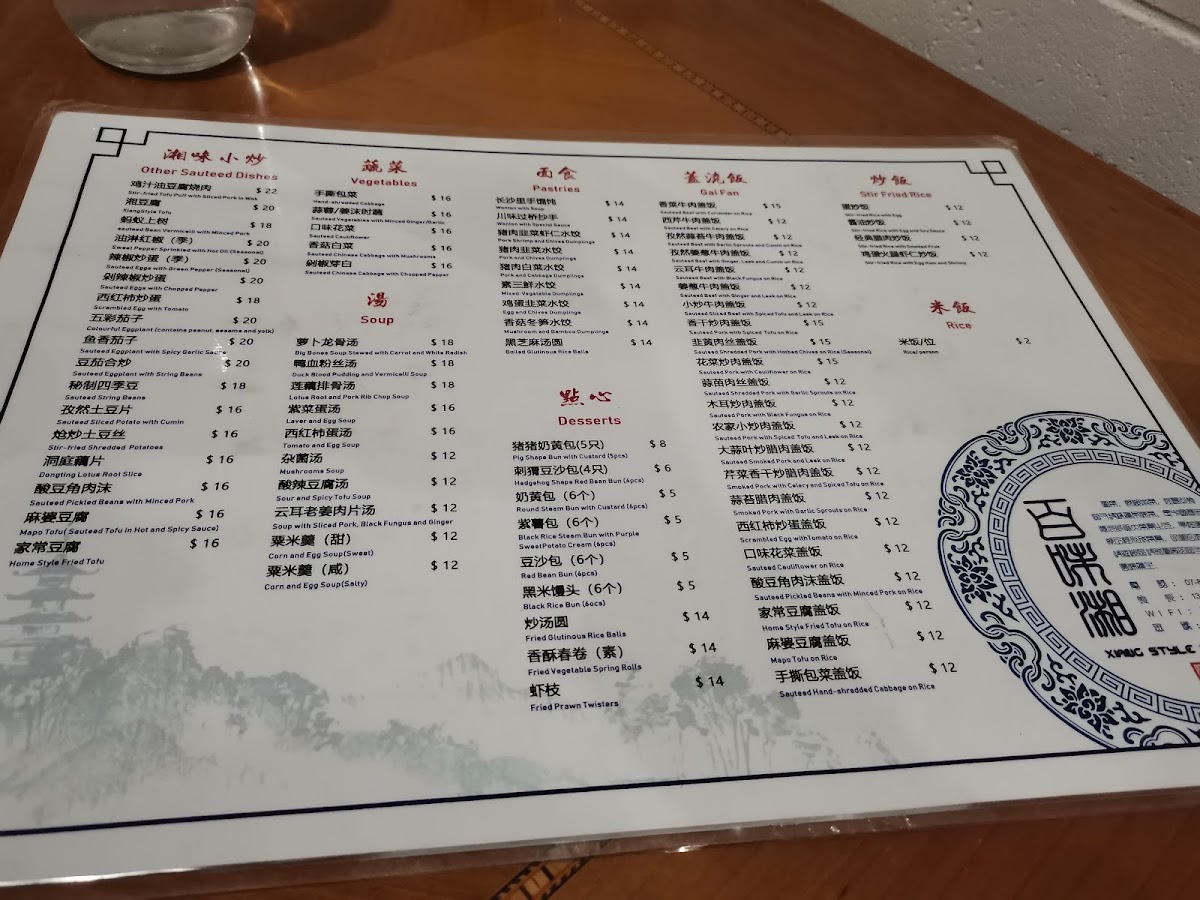 湘味小炒
Other Sauteed Dishes
鸡汁油豆腐烧肉 $ 22
Stir-fried Tofu Puff with Sliced Pork in Wok
湘豆腐 $ 20
XiangStyle Tofu
蚂蚁上树 $ 18
Sautéed Bean Vermicelli with Minced Pork
油淋红椒（季） $ 20
Sweet Pepper Sprinkled with Hot Oil (Seasonal)
辣椒炒蛋（季） $ 20
Sauteed Eggs with Green Pepper (Seasonal)
剁辣椒炒蛋 $ 20
Sauteed Eggs with Chopped Pepper
西红柿炒蛋 $ 18
Scrambled Egg with Tomato
五彩茄子 $ 20
Colourful Eggplant (contains peanut, sesame and yolk)
鱼香茄子 $ 20
Sauteed Eggplant with Spicy Garlic Sauce
豆茄合炒 $ 20
Sauteed Eggplant with String Beans
秘制四季豆 $ 18
Sauteed String Beans
孜然土豆片 $ 16
Sauteed Sliced Potato with Cumin
炝炒土豆丝 $ 16
Stir-fried Shredded Potatoes
洞庭藕片 $ 16
Dongting Lotus Root Slice
酸豆角肉沫 $ 16
Sauteed Pickled Beans with Minced Pork
麻婆豆腐 $ 16
Mapo Tofu( Sauteed Tofu in Hot and Spicy Sauce)
家常豆腐 $ 16
Home Style Fried Tofu
蔬菜
Vegetables
手撕包菜 $ 16
Hand-shredded Cabbage
蒜蓉/姜沫时蔬 $ 16
Sauteed Vegetables with Minced Ginger/Garlic
口味花菜 $ 16
Sauteed Cauliflower
香菇白菜 $ 16
Sauteed Chinese Cabbage with Mushrooms
剁椒芽白 $ 16
Sauteed Chinese Cabbage with Chopped Pepper
湯
Soup
萝卜龙骨汤 $ 18
Big Bones Soup Stewed with Carrot and White Radish
鸭血粉丝汤 $ 18
Duck Blood Pudding and Vermicelli Soup
莲藕排骨汤 $ 18
Lotus Root and Pork Rib Chop Soup
紫菜蛋汤 $ 16
Laver and Egg Soup
西红柿蛋汤 $ 16
Tomato and Egg Soup
杂菌汤 $ 12
Mushrooms Soup
酸辣豆腐汤 $ 12
Sour and Spicy Tofu Soup
云耳老姜肉片汤 $ 12
Soup with Sliced Pork, Black Fungus and Ginger
粟米羹（甜） $ 12
Corn and Egg Soup(Sweet)
粟米羹（咸） $ 12
Corn and Egg Soup(Salty)
面食
Pastries
长沙里手馄饨 $ 14
Wonton with Soup
川味过桥抄手 $ 14
Wonton with Special Sauce
猪肉韭菜虾仁水饺 $ 14
Pork Shrimp and Chives Dumplings
猪肉韭菜水饺 $ 14
Pork and Chives Dumplings
猪肉白菜水饺 $ 14
Pork and Cabbage Dumplings
素三鲜水饺 $ 14
Mixed Vegetable Dumplings
鸡蛋韭菜水饺 $ 14
Egg and Chives Dumplings
香菇冬笋水饺 $ 14
Mushroom and Bamboo Dumplings
黑芝麻汤圆 $ 14
Boiled Glutinous Rice Balls
點心
Desserts
猪猪奶黄包(5只) $ 8
Pig Shape Bun with Custard (5pcs)
刺猬豆沙包(4只) $ 6
Hedgehog Shape Red Bean Bun (4pcs)
奶黄包（6个） $ 5
Round Steam Bun with Custard (6pcs)
紫薯包（6个） $ 5
Black Rice Steam Bun with Purple
SweetPotato Cream (6pcs)
豆沙包（6个） $ 5
Red Bean Bun (6pcs)
黑米馒头（6个） $ 5
Black Rice Bun (6pcs)
炒汤圆 $ 14
Fried Glutinous Rice Balls
香酥春卷（素） $ 14
Fried Vegetable Spring Rolls
虾枝 $ 14
Fried Prawn Twisters
蓋澆飯
Gai Fan
香菜牛肉盖饭 $ 15
Sauteed Beef with Coriander on Rice
西芹牛肉盖饭 $ 12
Sauteed Beef with Celery on Rice
孜然蒜苔牛肉盖饭 $ 12
Sauteed Beef with Garlic Sprouts and Cumin on Rice
孜然姜葱牛肉盖饭 $ 12
Sauteed Beef with Ginger, Leek and Cumin on Rice
云耳牛肉盖饭 $ 12
Sauteed Beef with Black Fungus on Rice
姜葱牛肉盖饭 $ 12
Sauteed Beef with Ginger and Leek on Rice
小炒牛肉盖饭 $ 12
Sauteed Sliced Beef with Spiced Tofu and Leek on Rice
香干炒肉盖饭 $ 15
Sauteed Pork with Spiced Tofu on Rice
韭黄肉丝盖饭 $ 15
Sauteed Shredded Pork with Hotbed Chives on Rice (Seasonal)
花菜炒肉盖饭 $ 15
Sauteed Pork with Cauliflower on Rice
蒜苗肉丝盖饭 $ 12
Sauteed Shredded Pork with Garlic Sprouts on Rice
木耳炒肉盖饭 $ 12
Sauteed Pork with Black Fungus on Rice
农家小炒肉盖饭 $ 12
Sauteed Pork with Spiced Tofu and Leek on Rice
大蒜叶炒腊肉盖饭 $ 12
Sauteed Smoked Pork and Leek on Rice
芹菜香干炒腊肉盖饭 $ 12
Smoked Pork with Celery and Spiced Tofu on Rice
蒜苔腊肉盖饭 $ 12
Smoked Pork with Garlic Sprouts on Rice
西红柿炒蛋盖饭 $ 12
Scrambled Egg withTomato on Rice
口味花菜盖饭 $ 12
Sauteed Cauliflower on Rice
酸豆角肉沫盖饭 $ 12
Sauteed Pickled Beans with Minced Pork on Rice
家常豆腐盖饭 $ 12
Home Style Fried Tofu on Rice
麻婆豆腐盖饭 $ 12
Mapo Tofu on Rice
手撕包菜盖饭 $ 12
Sauteed Hand-shredded Cabbage on Rice
炒飯
Stir Fried Rice
蛋炒饭 $ 12
Stir-fried Rice with Egg
酱油炒饭 $ 12
Stir-fried Rice with Egg and Soy Sauce
经典腊肉炒饭 $ 12
Stir-fried Rice with Smoked Pork
鸡蛋火腿虾仁炒饭 $ 12
Stir-fried Rice with Egg Ham and Shrimp
米飯
Rice
米饭/位 $ 2
Rice/ person
百味湘
XIANG STYLE
WIFI: